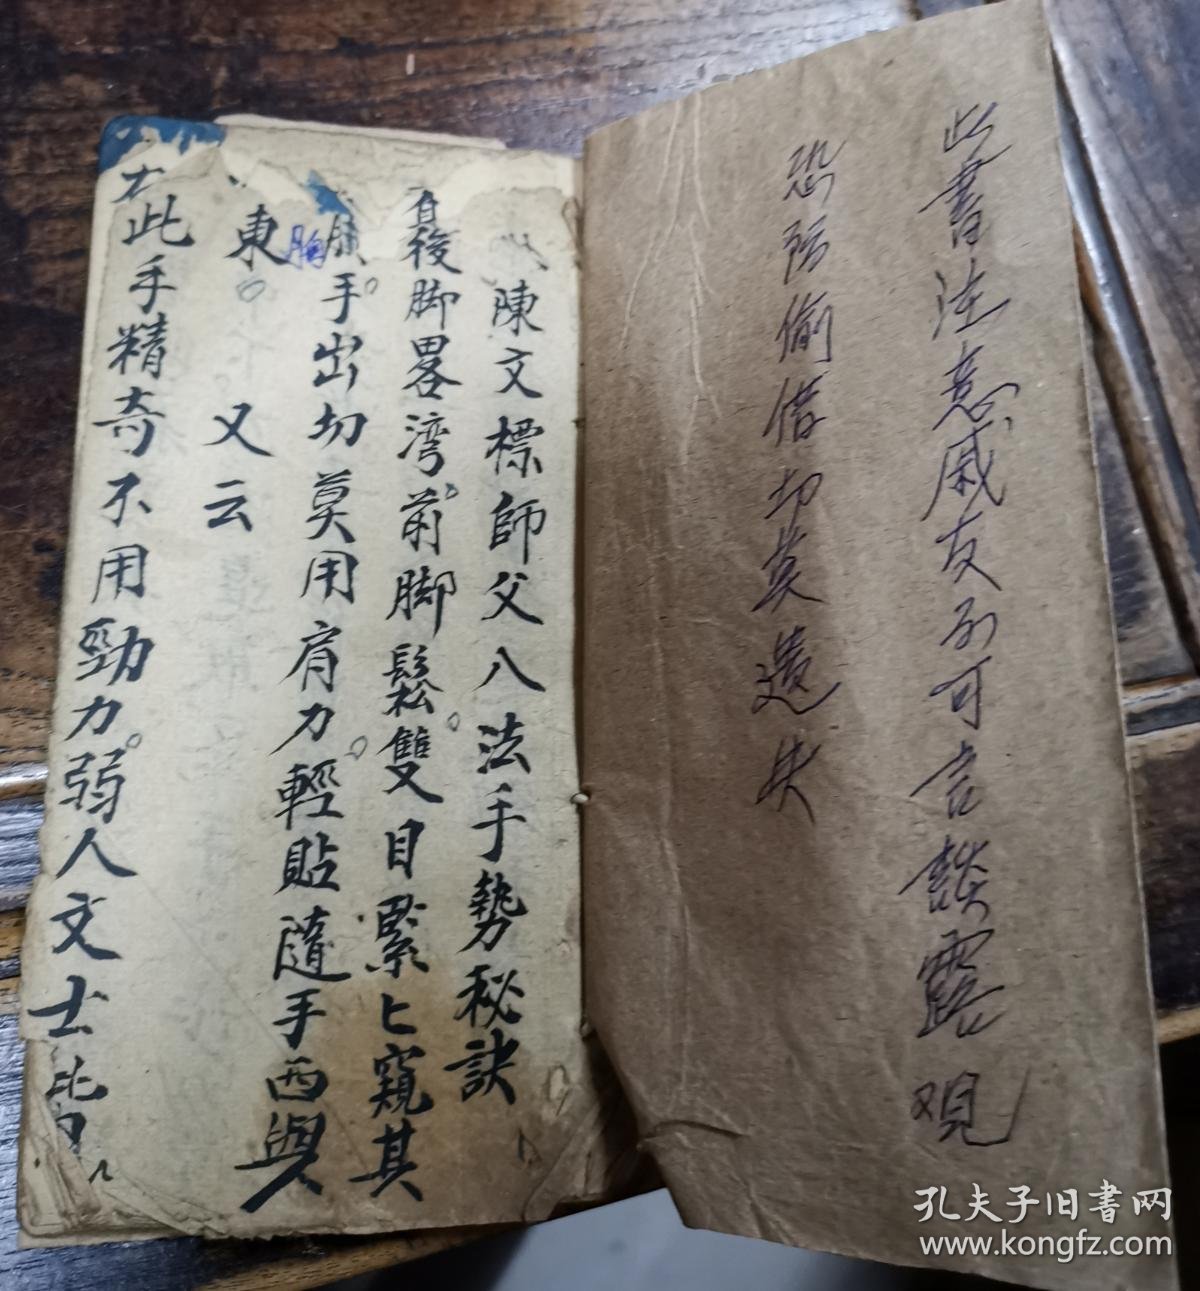 此書注意戚友不可言談露观
恐防偷借切莫遗失
陳文標師父八法手勢秘訣
後脚畧湾前脚鬆雙目緊匕窺其
胸
手出切莫用肩力輕貼隨手西與
東
又云
此手精奇不用勁力弱人文士
孔夫子旧書网
www.kongfz.com